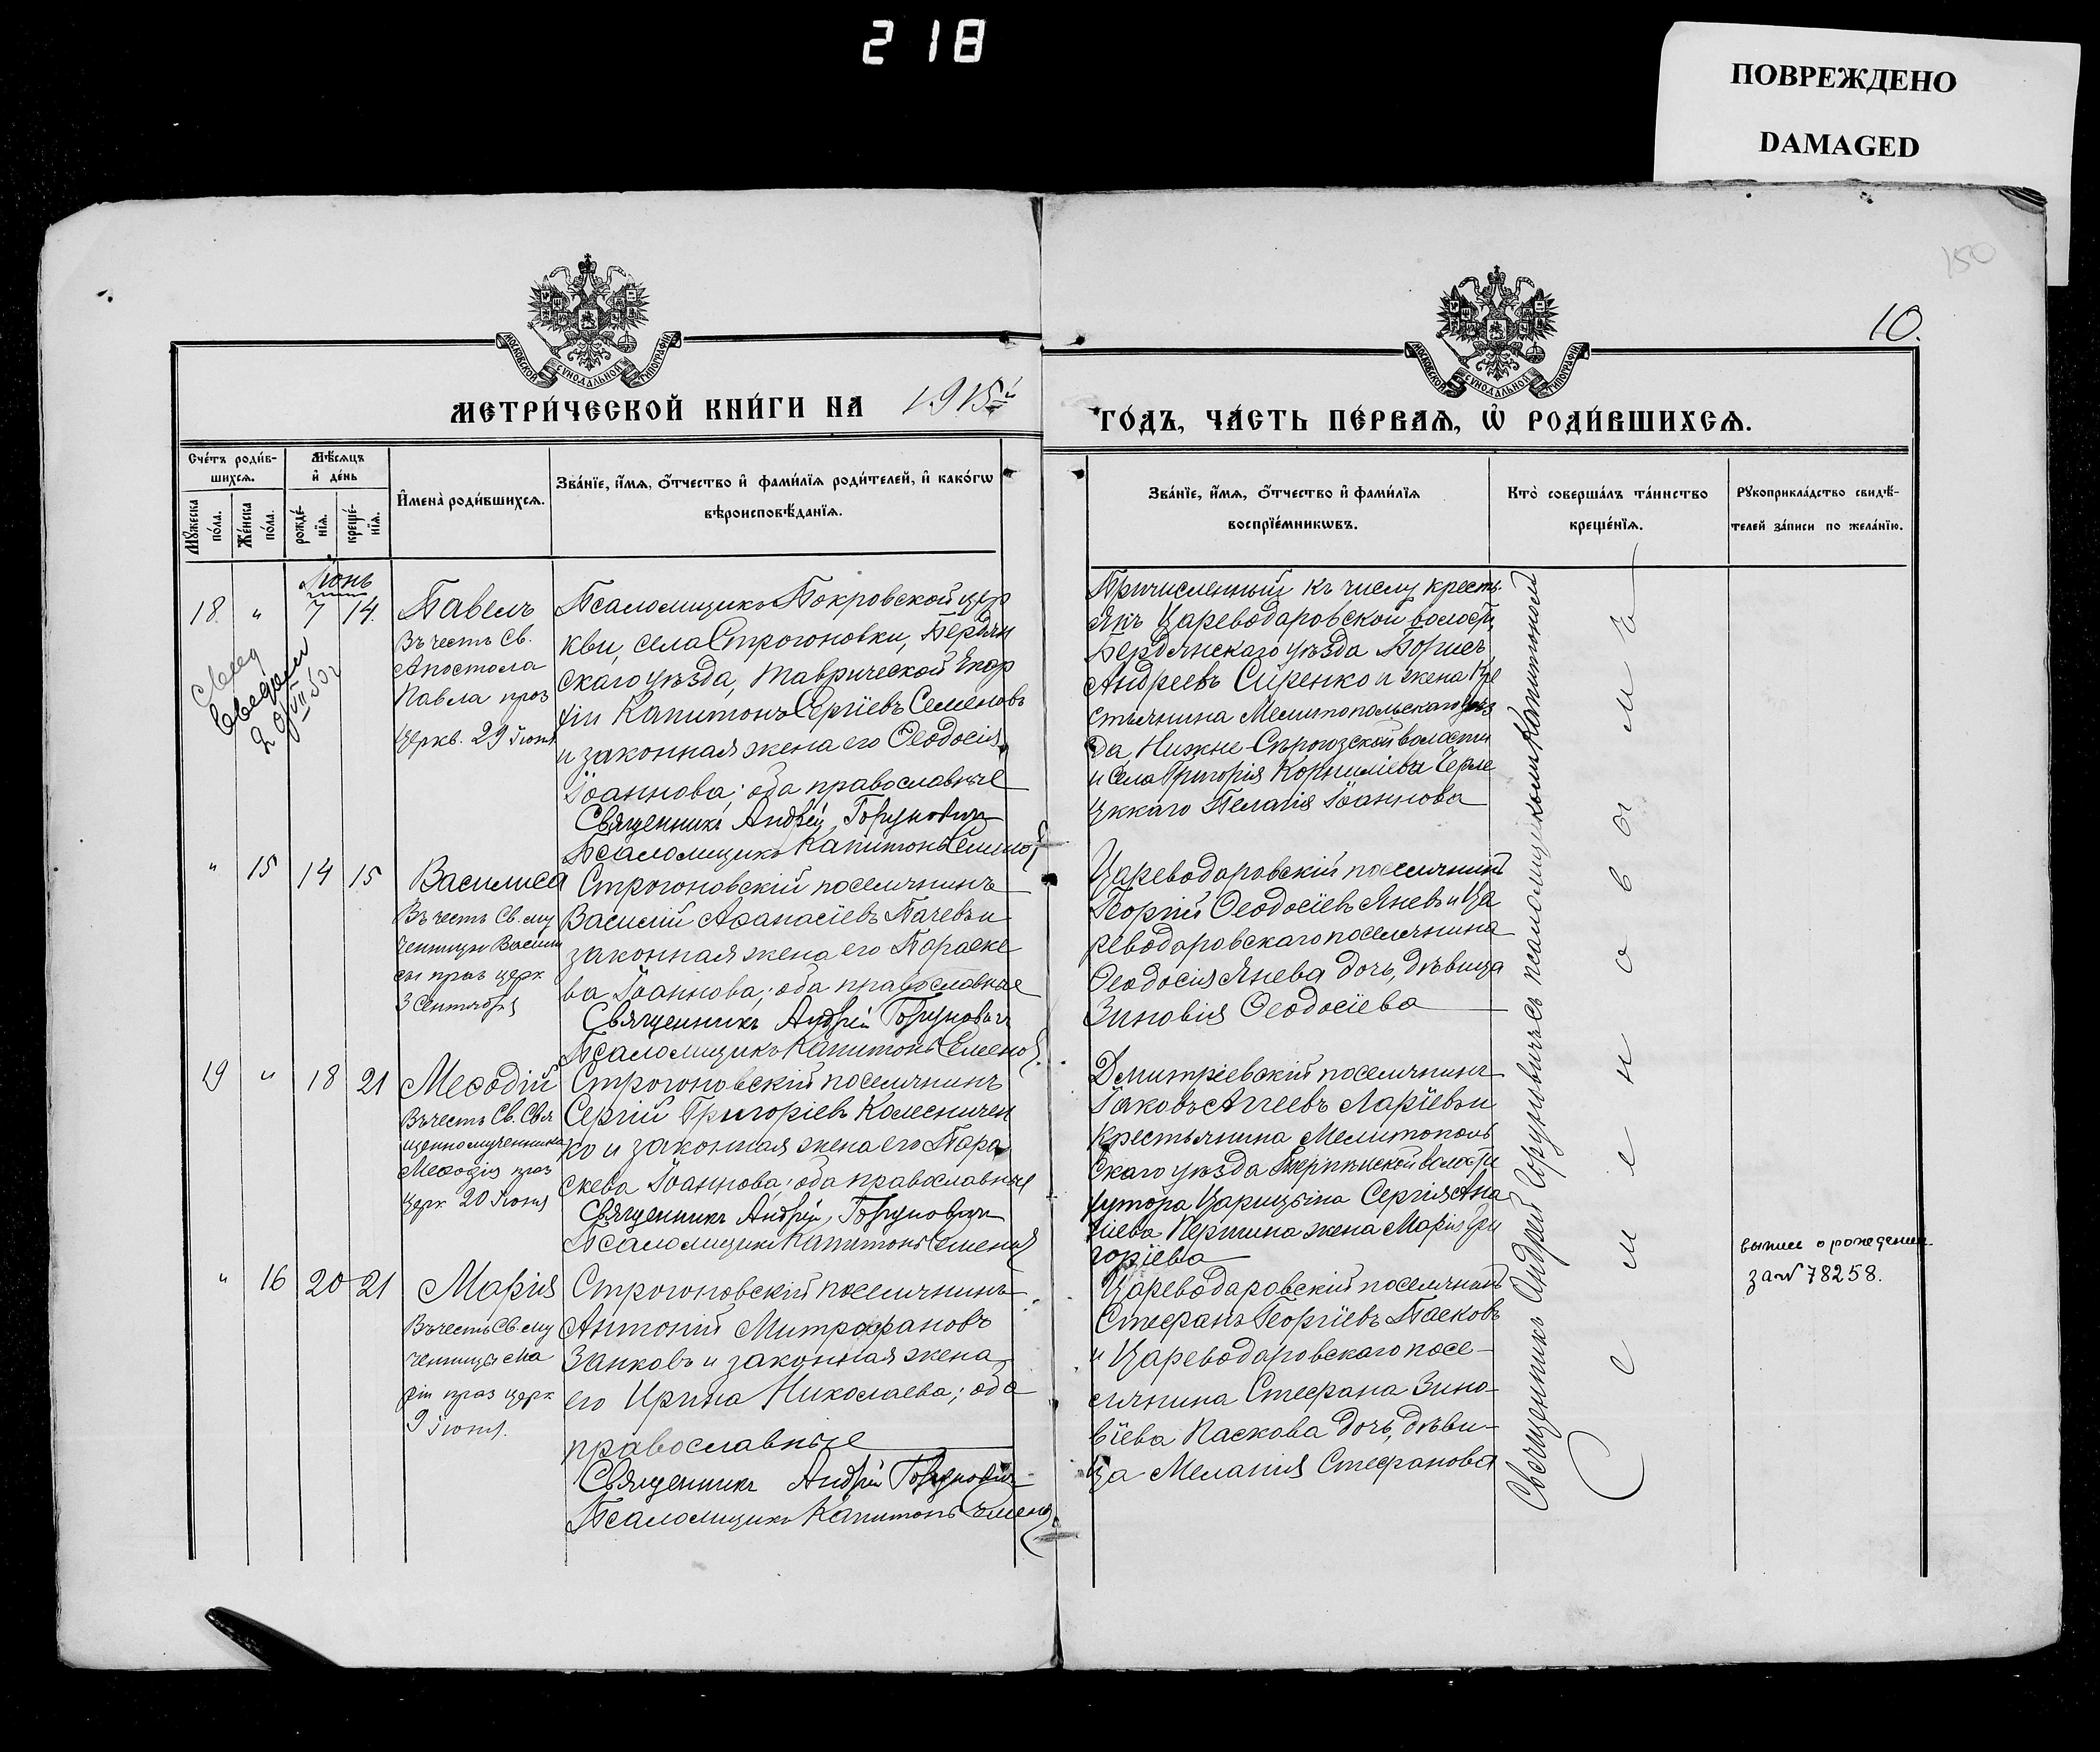 218
ПОВРЕЖДЕНО
DAMAGED
150
10.
МОСКОВСКОЙ СѴНОДАЛЬНОЙ ТИПОГРАФІИ
МОСКОВСКОЙ СѴНОДАЛЬНОЙ ТИПОГРАФІИ
МЕТРИ́ЧЕСКОЙ КНИ́ГИ НА 1915й
ГО́ДЪ, ЧА́СТЬ ПЕ́РВАѦ, Ѡ҆ РОДИ́ВШИХСѦ.
Сче́тъ роди́в-
шихсѧ.
Мꙋ́жеска
по́ла.
Же́нска
по́ла.
Мѣ́сѧцъ
и҆ де́нь
рожде́-
нїѧ.
креще́-
нїѧ.
И҆мена̀ роди́вшихсѧ.
Зва́нїе, и҆́мѧ, ѻ҆́тчество и҆ фами́лїѧ роди́телей, и҆ како́гѡ
вѣроисповѣ́данїѧ.
Зва́нїе, и҆́мѧ, ѻ҆́тчество и҆ фами́лїѧ
воспрїе́мникѡвъ.
Кто̀ соверша́лъ та́инство
креще́нїѧ.
Рꙋкоприкла́дство свидѣ́-
телей за́писи по жела́нїю.
Іюнь
18. " 7 14.
Павелъ
Въ честь Св.
Апостола
Павла праз
церкв. 29 Іюня
Псаломщикъ Покровской цер
кви, села Строгоновки, Бердян
скаго уѣзда, Таврической Епар
хіи Капитонъ Сергіевъ Семеновъ
и законная жена его Ѳеодосія
Іоаннова; оба православные
Священникъ Андрей Горуновичъ
Псаломщикъ Капитонъ Семеновъ
Причисленный къ числу кресть-
янъ Цареводаровской волости,
Бердянскаго уѣзда Борисъ
Андреевъ Сиренко и жена кре
стьянина Мелитопольскаго уѣз
да, Нижне-Сѣрогозской волости
и села Григорія Корниліева
Пелагія Іоаннова
" 15 14 15
Василиса
Въ честь Св. му
ченицы Васили
сы праз церк
3 Сентября
Строгоновскій поселянинъ
Василій Аѳанасіевъ Пачевъ и
законная жена его Параске
ва Іоаннова; оба православные
Священникъ Андрей Горуновичъ
Псаломщикъ Капитонъ Семеновъ
Цареводаровскій поселянинъ
Георгій Ѳеодосіевъ Яневъ и Ца
реводаровскаго поселянина
Ѳеодосія Янева дочь, дѣвица
Зиновія Ѳеодосіева
19 " 18 21
Меѳодій
Въ честь Св. Свя
щенномученника
Меѳодія праз
церк. 20 Іюня
Строгоновскій поселянинъ
Сергій Григоріевъ Колесничен
ко и законная жена его Пара
скева Іоаннова; оба православные
Священникъ Андрей Горуновичъ
Псаломщикъ Капитонъ Семеновъ
Дмитріевскій поселянинъ
Іаковъ Аггеевъ Ларіевъ и
крестьянина Мелитополь
скаго уѣзда Терпѣнской волости
хутора Царицына Сергія
жена Марія Гри
горіева
" 16 20 21
Марія
Въ честь Св. му
ченицы Ма
ріи праз церк
9 Іюня.
Строгоновскій поселянинъ
Антоній Митрофановъ
Занковъ и законная жена
его Ирина Николаева; оба
православные
Священникъ Андрей Горуновичъ
Псаломщикъ Капитонъ Семеновъ
Цареводаровскій поселянинъ
Стефанъ Георгіевъ Пасковъ
и Цареводаровскаго посе-
лянина Стефана Зино-
віева Паскова дочь, дѣви-
ца Меланія Стефанова
Священникъ Андрей Горуновичъ съ псаломщикомъ Капитономъ
Семеновымъ
выпись о рождении
за № 78258.